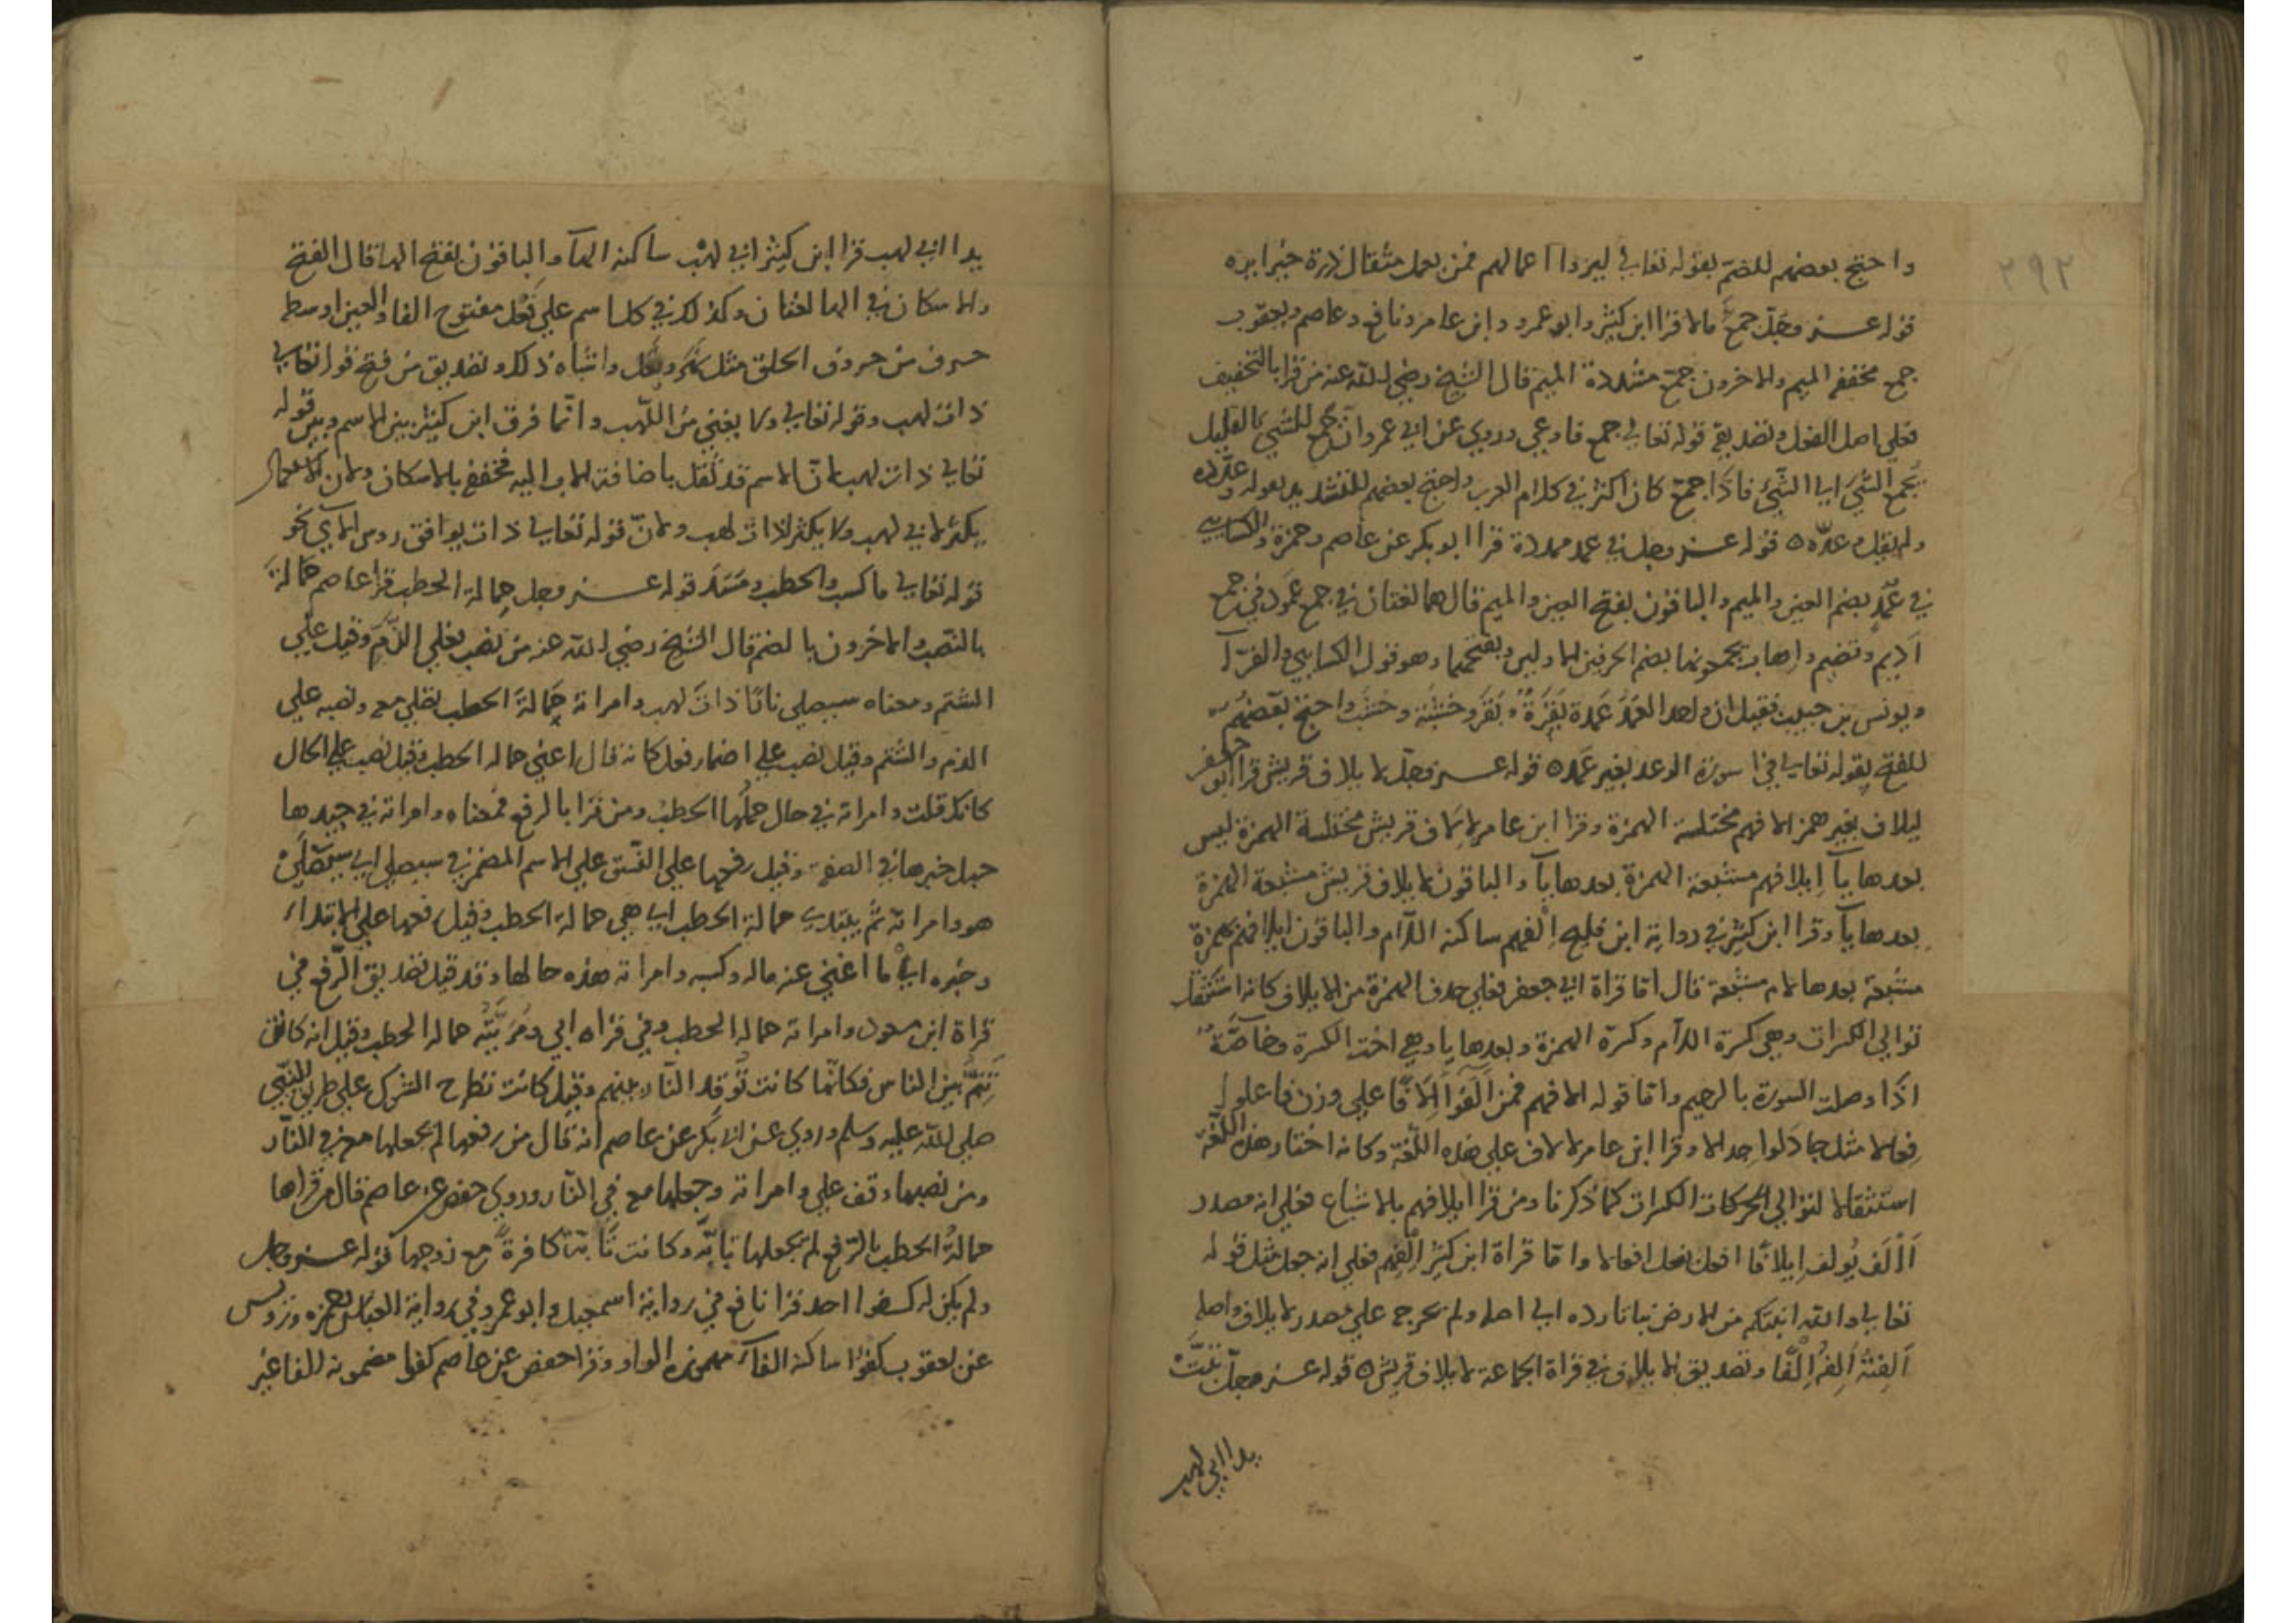 ٢٩٢
واحتج بعضهم للضمّ بقوله تعالى ليروا اعمالهم فمن يعمل مثقال ذرة خيرا يره
قوله عز وجلّ جمع مالا قرا ابن كثير وابو عمرو وابن عامر ونافع وعاصم ويعقوب
جمع مخففه الميم والاخرون جمّع مشددة الميم قال الشيخ رضي الله عنه من قرا بالتخفيف
فعلى اصل الفعل وتصديقه قوله تعالى جمع فاوعى وروي عن ابي عمرو انّ جمع للشيء القليل
يجمع الشيء الى الشيء فاذا جمّع كان اكثر في كلام العرب واحتج بعضهم للتشديد بقوله وعدّده
ولم يقل وعدّه ه قوله عز وجل في عمد ممددة قرا ابو بكر عن عاصم وحمزة والكسايي
في عُمُدٍ بضم العين والميم والباقون بفتح العين والميم قال هما لغتان في جمع عمود في جمع
اديم وقضيم واهاب يجمعونها بضم الحرفين الاولين وبفتحهما وهو قول الكسايي والفرّا
ويونس بن حبيب فقيل ان واحد العَمَد عَمَدة بَقَرَةٌ وبَقَر وخشبة وخشب واحتج بعضهم
للفتح بقوله تعالى في سورة الرعد بغير عمد ه قوله عز وجلّ لايلاف قريش قرا ابو جعفر
ليلاف بغير همز الافهم مختلسة الهمزة وقرا ابن عامر لالاف قريش مختلسة الهمزة ليس
بعدها يآ ايلافهم مشبعة الهمزة بعدها يآ والباقون لايلاف قريش مشبعة الهمزة
بعدها يآ وقرا ابن كثير في رواية ابن فليح اِلْفهم ساكنه اللام والباقون ايلافهم بهمزة
مشبعة بعدها لام مشبعة قال اما قراة ابي جعفر فعلى حذف الهمزة من الايلاف كانه استثقل
توالي الكسرات وهي كسرة اللام وكسرة الهمزة وبعدها يا وهي اخت الكسرة وخاصّةً
اذا وصلت السورة بالرحيم واما قوله الافهم فمن الفوا الافا على وزن فاعلوا
فعالا مثل جادلوا جدالا وقرا ابن عامر لالاف على هذه اللّغة وكانه اختار هذه اللّغة
استثقالا لتوالي الحركات الكسرات كما ذكرنا ومن قرا ايلافهم بالاشباع فعلى انه مصدر
اَالَف يُولف ايلافا افعل يفعل افعالا واما قراة ابن كثير اِلْفهم فعلى انه جعل مثل قوله
تعالى والله انبتكم من الارض نباتا رده الى اصله ولم يخرج على مصدر لايلاف واصله
اَلِفتُهُ اَلِفُه اِلْفا وتصديق لايلاف في قراة الجماعة لايلاف قريش ه قوله عز وجلّ تبّت
يدا ابي لهب
يدا ابي لهب قرا ابن كثير ابي لهْب ساكنه الهآ والباقون بفتح الها قال الفتح
والاسكان في الها لغتان وكذلك في كل اسم على فعل مفتوح الفا والعين اوسط
حرف من حروف الحلق مثل نهر وبغل واشباه ذلك وتصديق من فتح قوله تعالى
ذات لهب وقوله تعالى ولا يغني من اللهب وانّما فرق ابن كثير بين الاسم وبين قوله
تعالى ذات لهب لانّ الاسم قد ثقل باضافة الاب اليه فخفف بالاسكان ولان الاستعمال
يكثر لابي لهب ولا يكثر لذات لهب ولانّ قوله تعالى ذات يوافق روس الآي نحو
قوله تعالى ما كسب والحطب ومَسَد قوله عز وجل حمالة الحطب قرا عاصم حمّالةَ
بالنّصب والاخرون بالضم قال الشيخ رضي الله عنه من نصب فعلى الذمّ وقيل على
الشتم ومعناه سيصلى نارًا ذات لهب وامراته حمّالةَ الحطب تصلى معه ونصبه على
الذم والشتم وقيل نصب على اضمار فعل كانه قال اعني حمالة الحطب وقيل نصب على الحال
كانك قلت وامراته في حال حملها الحطب ومن قرا بالرفع فمعناه وامراته في جيدها
حبل خبرها في الصفة وقيل رفعها على النّسق على الاسم المضمر في سيصلى اي سيصلى
هو وامراته ثمّ يبتدي حمالة الحطب اي هي حمالة الحطب وقيل رفعها على الابتداء
وخبره اي ما اغنى عنه ماله وكسبه وامراته هذه حالها وقد قيل تصديق الرّفع في
قراة ابن مسعود وامراته حمالة الحطب وفي قراه ابي ومُرَيَّتُه حمالة الحطب وقيل انه كانت
تَنِمُّ بين الناس فكانّما كانت تُوقد النّار بينهم وقيل كانت تطرح الشوك على طريق النّبي
صلى الله عليه وسلم وروي عن ابي بكر عن عاصم انه قال من رفعها لم يجعلها معه في النّار
ومن نصبها وقف على وامراته وجعلها معه في النّار وروي حفص عن عاصم قال من قراها
حمالةُ الحطب بالرّفع لم يجعلها تايبة وكانت كافرةً مع زوجها قوله عز وجل
ولم يكن له كفوا احد قرا نافع في رواية اسمعيل وابو عمرو في رواية العباس وحمزه وزويس
عن يعقوب كفؤا ساكنه الفآ مهموزه الواو وقرا حفص عن عاصم كفوا مضمومه الفا غير